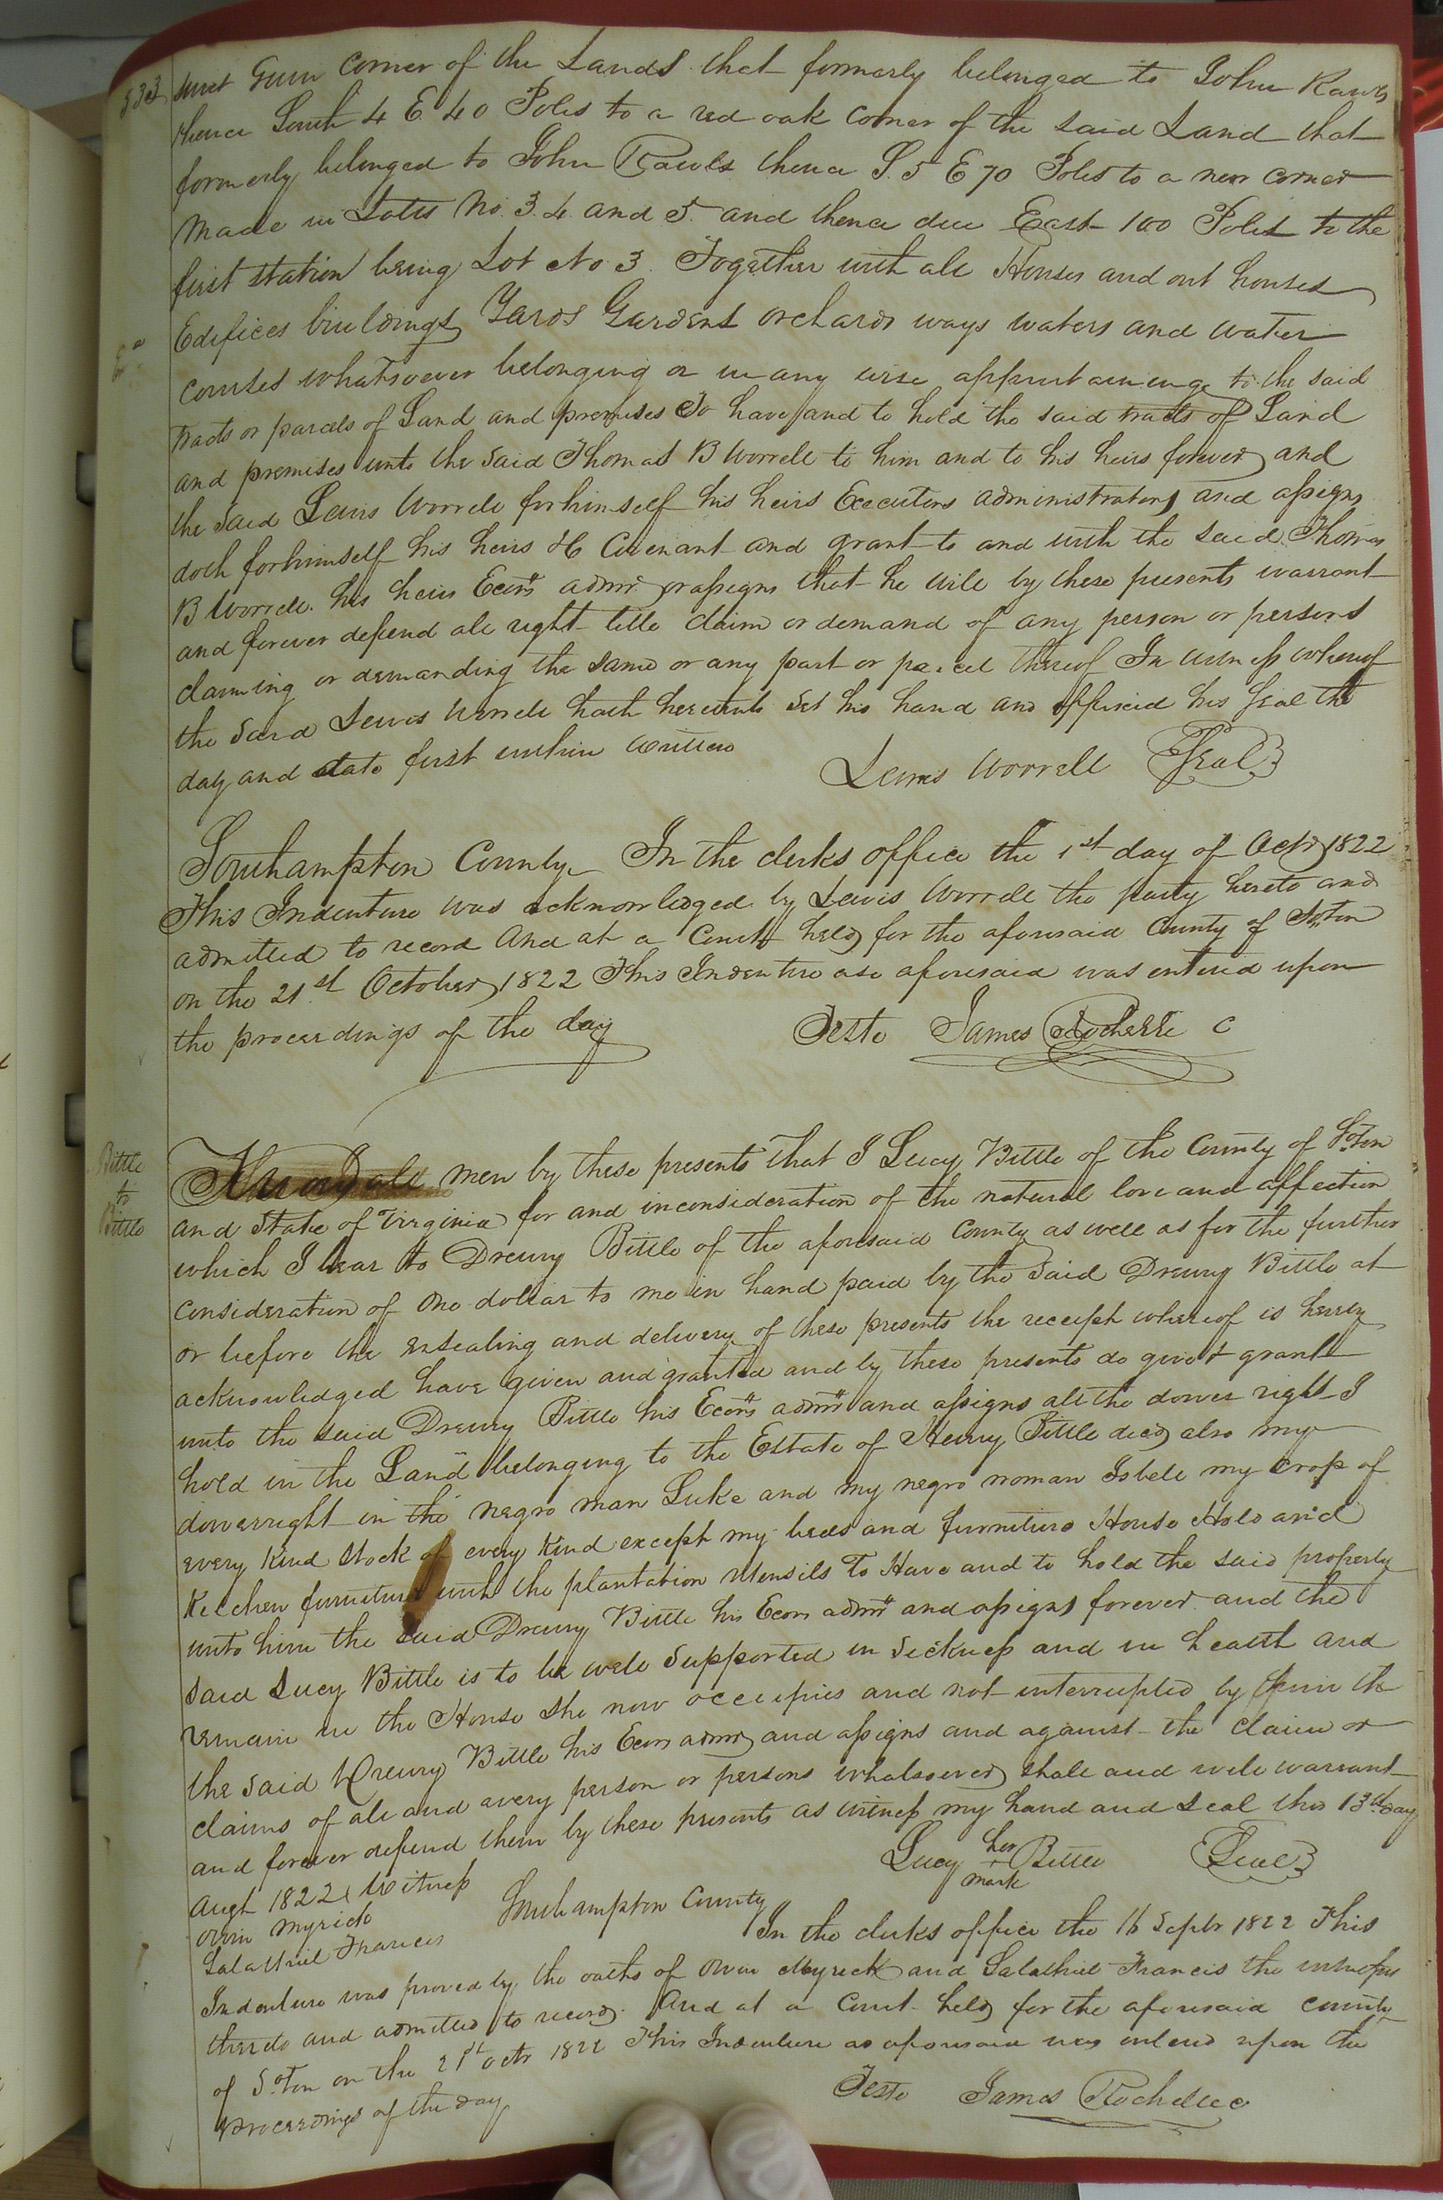 533
sweet Gum Corner of the Lands that formerly belonged to John Rawls
thence South 4 E 40 Poles to a red oak Corner of the said Land that
formerly belonged to John Rawls thence S. 5 E 70 Poles to a new corner
Made in Lotts No. 3. 4. and 5. and thence due East 100 Poles to the
first station being Lot No 3. Together with all Houses and out houses
Edifices buildings Yards Gardens orchards ways waters and water
courses whatsoever belonging or in any wise appurtaining to the said
tracts or parcels of Land and premises To have and to hold the said tracts of Land
and premises unto the said Thomas B Worrell to him and to his heirs forever and
the said Lewis Worrell for himself his heirs Executors administrators and assigns
doth for himself his heirs &c Covenant and grant to and with the said Thomas
B Worrell his heirs Ecors admrs or assigns that he will by these presents warrant
and forever defend all right title claim or demand of any person or persons
claiming or demanding the same or any part or parcel thereof In witness whereof
the said Lewis Worrell hath hereunto set his hand and affixed his seal the
day and date first within written
Lewis Worrell Seal
Southampton County In the clerks office the 1st day of Octr 1822
This Indenture was acknowledged by Lewis Worrell the party hereto and
admitted to record And at a Court held for the aforesaid County of So.ton
on the 21st October 1822 This Indenture as aforesaid was entered upon
the proceedings of the day
Teste James Rochelle C
Bittle
to
Bittle
Know all men by these presents that I Lucy Bittle of the County of So.ton
and State of Virginia for and inconsideration of the natural love and affection
which I bear to Drewry Bittle of the aforesaid County as well as for the further
consideration of one dollar to me in hand paid by the said Drewry Bittle at
or before the ensealing and delivery of these presents the receipt whereof is hereby
acknowledged have given and granted and by these presents do give & grant
unto the said Drewry Bittle his Ecors admrs and assigns all the dower right I
hold in the Land belonging to the Estate of Henry Bittle decd also my
dower right in the negro man Luke and my negro woman Isbell my crop of
every kind stock of every kind except my beds and furniture House Hold and
Kitchen furniture with the plantation utensils To Have and to hold the said property
unto him the said Drewry Bittle his Ecors admrs and assigns forever and the
said Lucy Bittle is to be well supported in sickness and in health and
remain in the House she now occupies and not interrupted by him the
the said Drewry Bittle his Ecors admrs and assigns and against the claim or
claims of all and every person or persons whatsoever shall and will warrant
and forever defend them by these presents as witness my hand and seal this 13th day
Augt 1822 Witness
Lucy her mark Bittle Seal
Owin Myrick
Salathiel Francis
Southampton County
In the clerks office the 16 Septr 1822 This
Indenture was proved by the oaths of Owin Myrick and Salathiel Francis the witnesses
thereto and admitted to record. And at a Court held for the aforesaid county
of So.ton on the 21st Octr 1822 This Indenture as aforesaid was entered upon the
proceedings of the day
Teste James Rochelle C